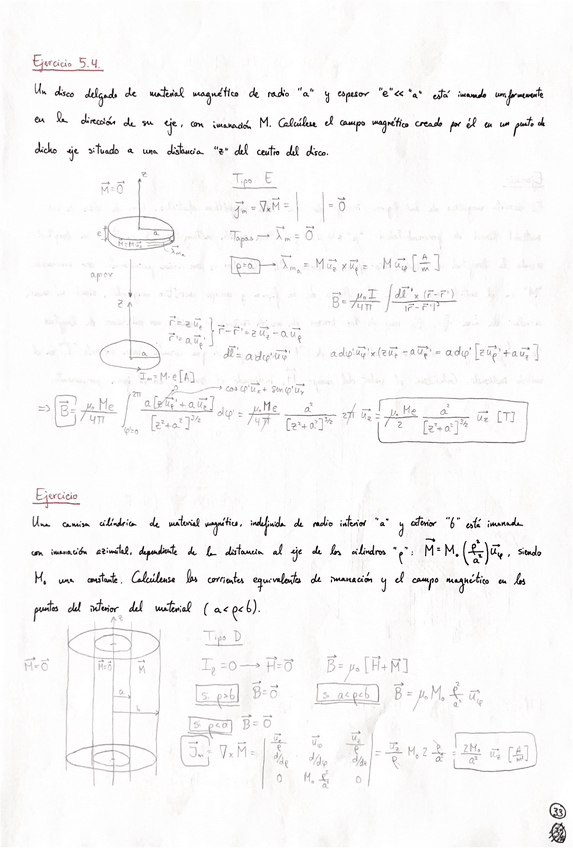 Ejercicio 5.4.
Un disco delgado de material magnético de radio "a" y espesor "e"<<"a" está imanado uniformemente
en la dirección de su eje, con imanación M. Calcúlese el campo magnético creado por él en un punto de
dicho eje situado a una distancia "z" del centro del disco.
Tipo E
M⃗=0⃗
z
a
e
λ⃗m
j⃗m = ∇×M⃗ = | | = 0⃗
Tapas → λ⃗m = 0⃗
ρ=a → λ⃗m = M u⃗z × u⃗ρ = M u⃗φ [A/m]
B⃗ = μ₀I/4π ∫ dl⃗'×(r⃗-r⃗')/|r⃗-r⃗'|³
z
r⃗ = z u⃗z
r⃗' = a u⃗ρ } r⃗-r⃗' = z u⃗z - a u⃗ρ
a
dl⃗' = a dφ' u⃗φ'
a dφ' u⃗φ' × (z u⃗z - a u⃗ρ') = a dφ' [z u⃗ρ' + a u⃗z]
Im = M·e [A]
cos φ' u⃗x + sen φ' u⃗y
⇒ B⃗ = μ₀Me/4π ∫φ'=0 2π a[z u⃗ρ' + a u⃗z]/[z²+a²]^3/2 dφ' = μ₀Me/4π a²/[z²+a²]^3/2 2π u⃗z = μ₀Me/2 a²/[z²+a²]^3/2 u⃗z [T]
Ejercicio
Una camisa cilíndrica de material magnético, indefinida de radio interior "a" y exterior "b" está imanada
con imanación azimutal, dependiente de la distancia al eje de los cilindros "ρ": M⃗ = M₀ (ρ²/a²) u⃗φ, siendo
M₀ una constante. Calcúlense las corrientes equivalentes de imanación y el campo magnético en los
puntos del interior del material (a<ρ<b).
z
Tipo D
M⃗=0⃗
M⃗=0⃗
M⃗
a
b
Iℓ = 0 → H⃗ = 0⃗ B⃗ = μ₀[H⃗+M⃗]
si ρ>b B⃗ = 0⃗ si a<ρ<b B⃗ = μ₀M₀ ρ²/a² u⃗φ
si ρ<a B⃗ = 0⃗
J⃗m = ∇×M⃗ = | u⃗ρ/ρ u⃗φ u⃗z/ρ | = u⃗z/ρ M₀ 2 ρ/a² = 2M₀/a² u⃗z [A/m²]
d/dρ d/dφ d/dz
0 M₀ ρ²/a² 0
33